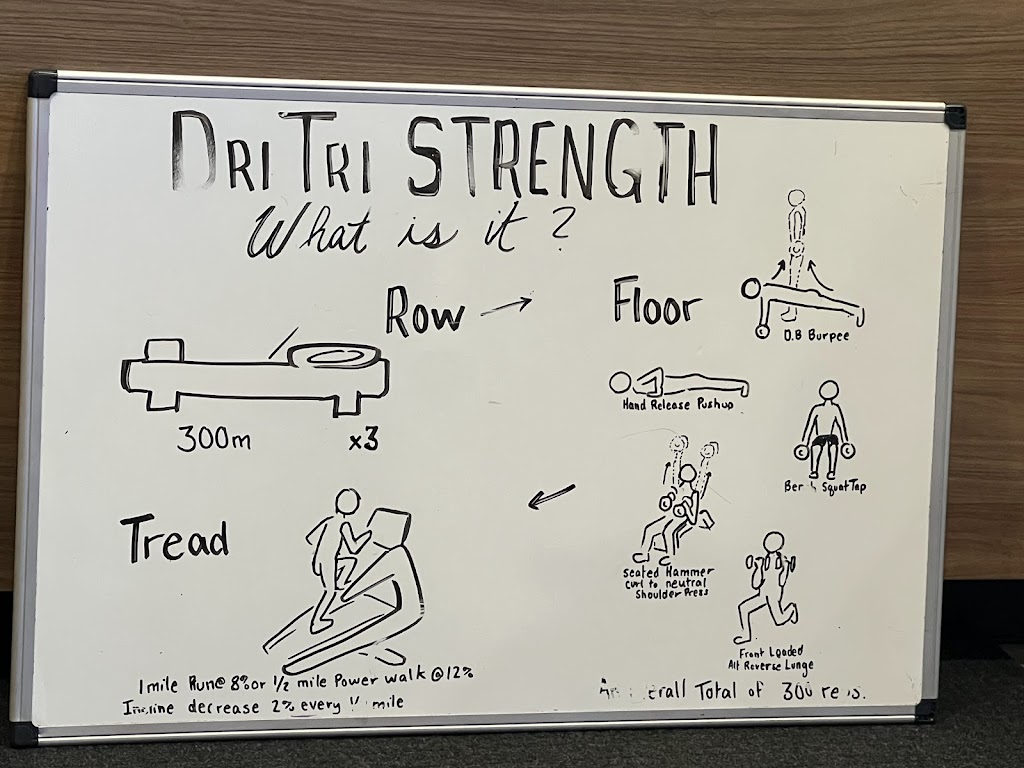 DRI TRI STRENGTH
What is it?
Row →
300m x3
Floor
D.B Burpee
Hand Release Pushup
Squat Tap
Seated Hammer
curl to neutral
Shoulder Press
Front Loaded
Alt Reverse Lunge
Tread
1 mile Run@ 8% or 1/2 mile Power walk @ 12%
decrease 2% every mile
Total of 300